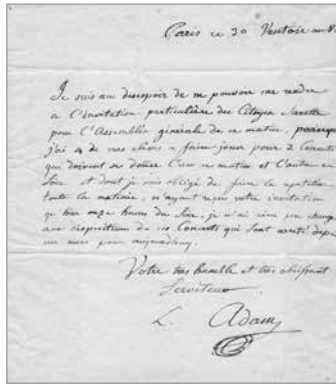 Paris ce 30 Ventose an
Je suis au desespoir de ne pouvoir me rendre
a l'invitation particulière du Citoyen Sarette
pour l'Assemblée générale de ce matin, parceque
j'ai 4 de mes élèves a faire jouer pour 2 Concerts
qui doivent se donner l'un ce matin et l'autre ce
Soir et dont je suis obligé de faire la repetition
toute la matinée, n'ayant reçu votre invitation
qu'hier onze heures du Soir, je n'ai rien pu changer
aux dispositions de ces Concerts qui sont arreté depuis
un mois pour aujourdhuy.
Votre tres humble et tres obéissant
Serviteur
L. Adam